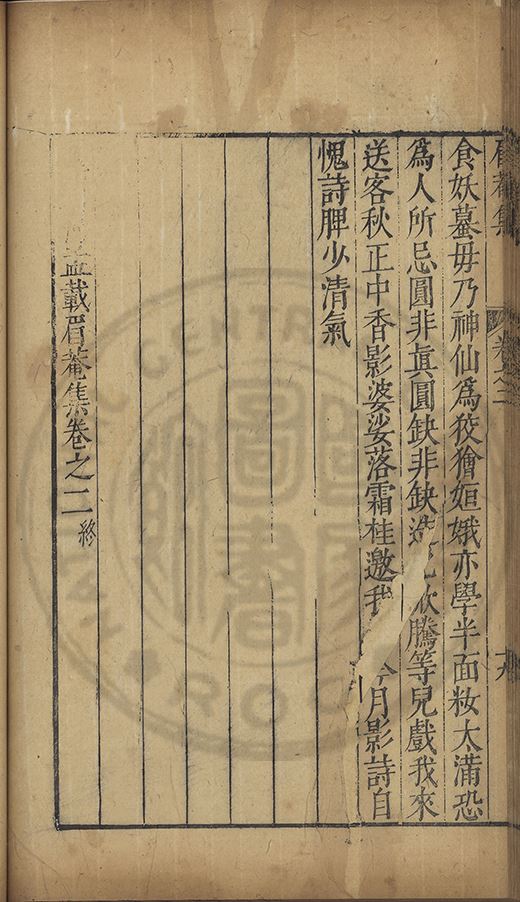 眉菴集 卷之二 十九
食妖蟇毋乃神仙爲狡獪姮娥亦學半面妝太滿恐
爲人所忌圓非眞圓缺非缺造騰等兒戲我來
送客秋正中香影婆娑落霜桂邀我今月影詩自
愧詩脾少清氣
孟載眉菴集卷之二終